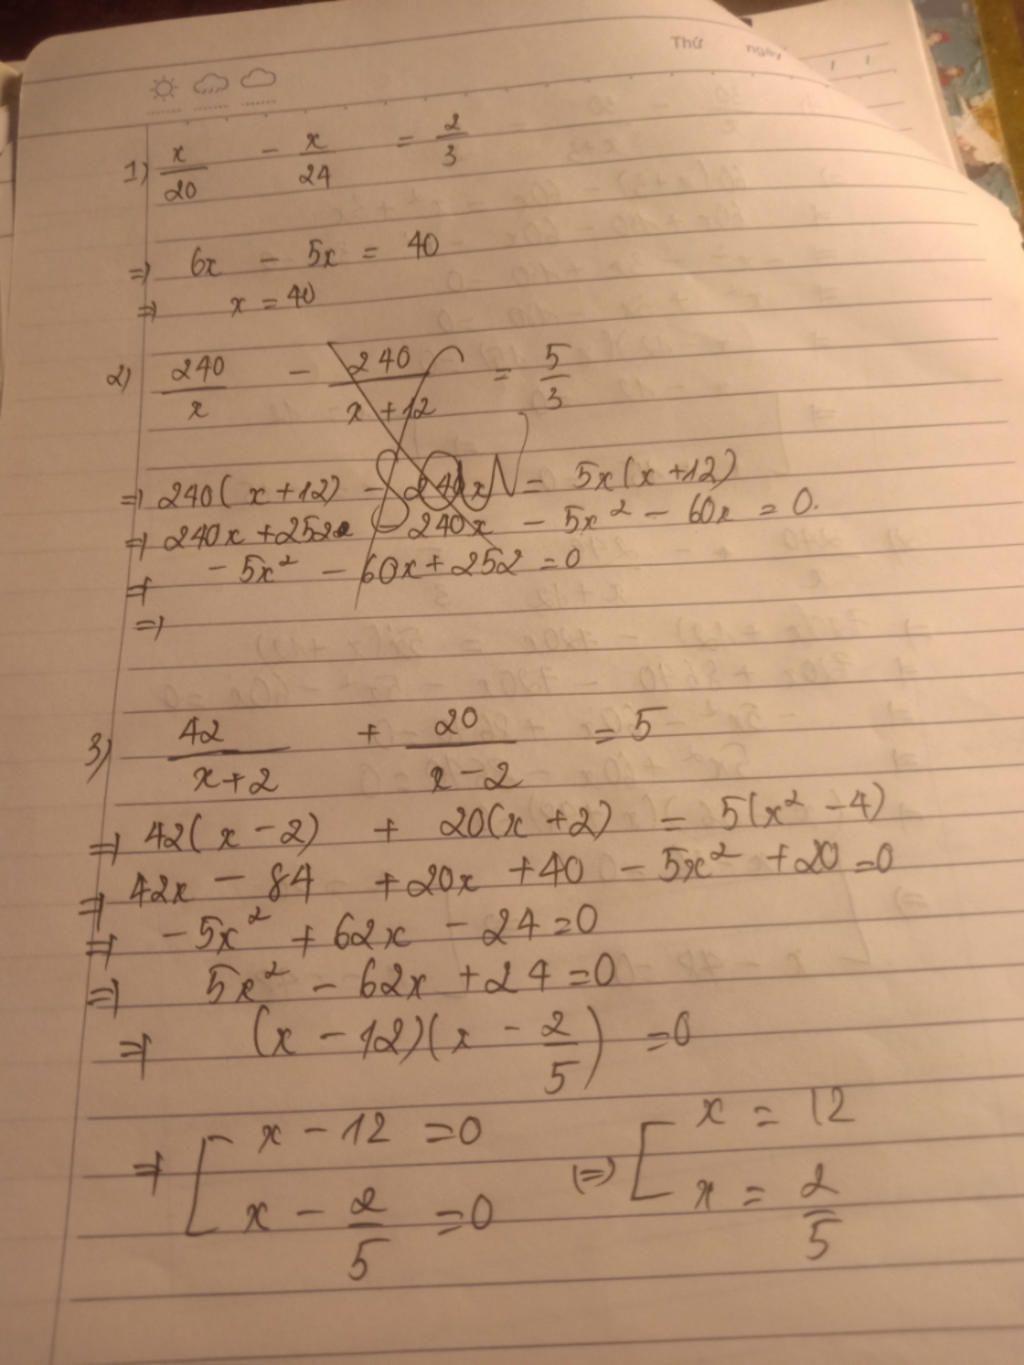 Thứ ngày / /
1) x/20 - x/24 = 2/3
=> 6x - 5x = 40
=> x = 40
2) 240/x - 240/(x+12) = 5/3
=> 240(x+12) - 240x = 5x(x+12)
=> 240x + 252 - 240x - 5x² - 60x = 0.
=> -5x² - 60x + 252 = 0
=>
3) 42/(x+2) + 20/(x-2) = 5
=> 42(x-2) + 20(x+2) = 5(x² - 4)
=> 42x - 84 + 20x + 40 - 5x² + 20 = 0
=> -5x² + 62x - 24 = 0
=> 5x² - 62x + 24 = 0
=> (x - 12)(x - 2/5) = 0
=> [ x - 12 = 0 (=) [ x = 12
x - 2/5 = 0 x = 2/5